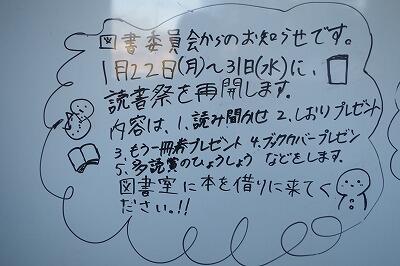 図書委員会からのお知らせです。
1月22日(月)~31日(水)に、
読書祭を再開します。
内容は、1.読み聞かせ 2.しおりプレゼント
3.もう一冊券プレゼント 4.ブックカバープレゼン
5.多読賞のひょうしょう などをします。
図書室に本を借りに来てく
ださい。!!